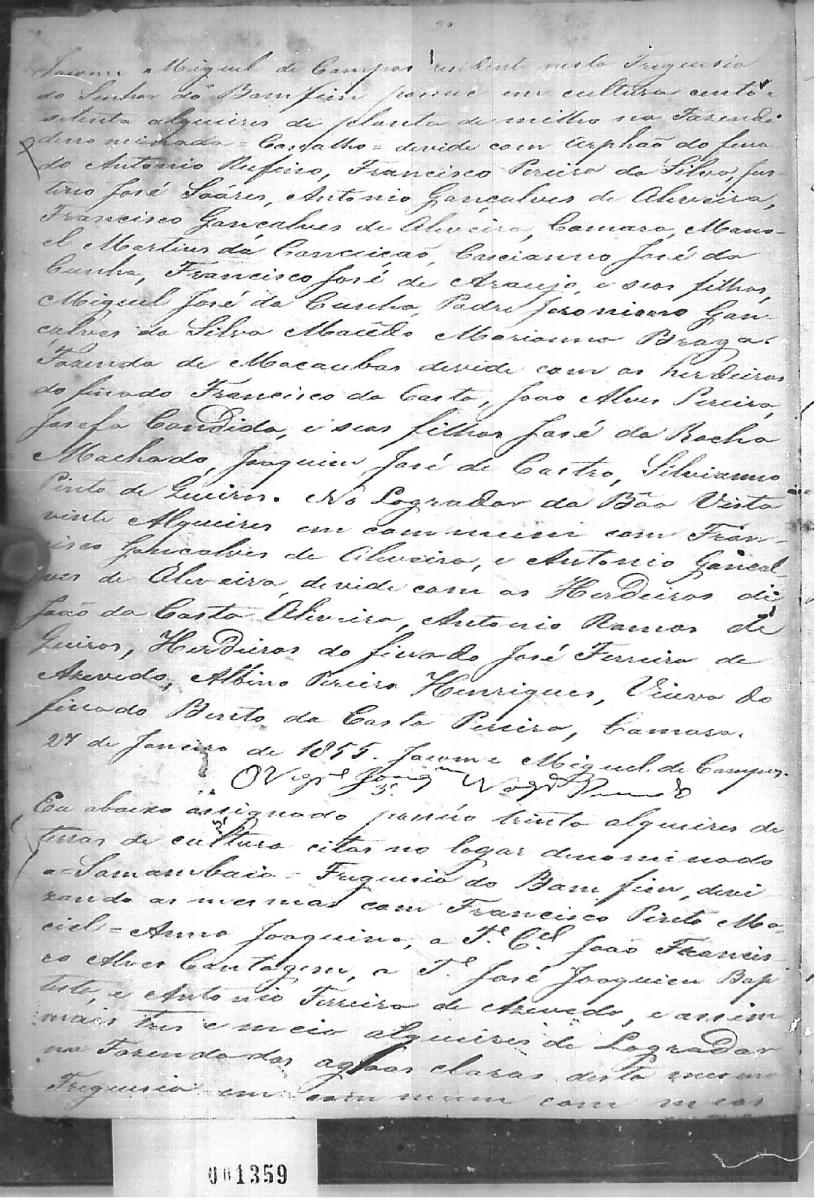 Jacome Miguel de Campos residente nesta Freguesia
do Senhor do Bomfim possue em cultura cento e
setenta alqueires de planta de milho na Fazenda
denominada = Carvalho = devide com orphão do fina
do Antonio Rufino, Francisco Pereira da Silva, Jus-
tino José Soáres, Antonio Gonçalves de Oliveira,
Francisco Gonçalves de Oliveira, Camara, Mano-
el Martins da Conceicaõ, Cascianno José da
Cunha, Francisco José de Araujo, e seos filhos,
Miguel José da Cunha, Padre Jeronimo Gon-
calves da Silva Macêdo Marianna Braga.
Fazenda de Macaubas devide com os herdeiros
do finado Francisco da Costa, Joaõ Alves Pereira,
Josefa Candida, e seos filhos José da Rocha
Machado, Joaquim José de Castro, Silvianno
Pinto de Queiros. No Logrador da Bôa Vista
vinte Alqueires em commum com Fran-
cisco Gonçalves de Oliveira, e Antonio Goncal-
ves de Oliveira, devide com os Herdeiros di
Joaõ da Costa Oliveira, Antonio Ramos de
Queiros, Herdeiros do finado José Ferreira de
Azevedo, Albino Pereira Henriques, Viuva do
finado Bento da Costa Pereira, Camara.
27 de Janeiro de 1855. Jacome Miguel de Campos.
O Vigr.º
Eu abaixo assignado possúo trinta alqueires de
terras de cultura citas no logar denominado
= Samambaia = Freguesia do Bomfim, devi
zando as mesmas com Francisco Pinto Ma-
ciel = Anna Joaquina, o T.e C.el João Francis-
co Alves Contagem, o T.e José Joaquim Bap
tista, e Antonio Ferreira de Azevedo, e assim
mais tres e meio alqueires de Logrador
na Fazenda das agoas claras desta mesma
Freguesia em commum com meos
001359